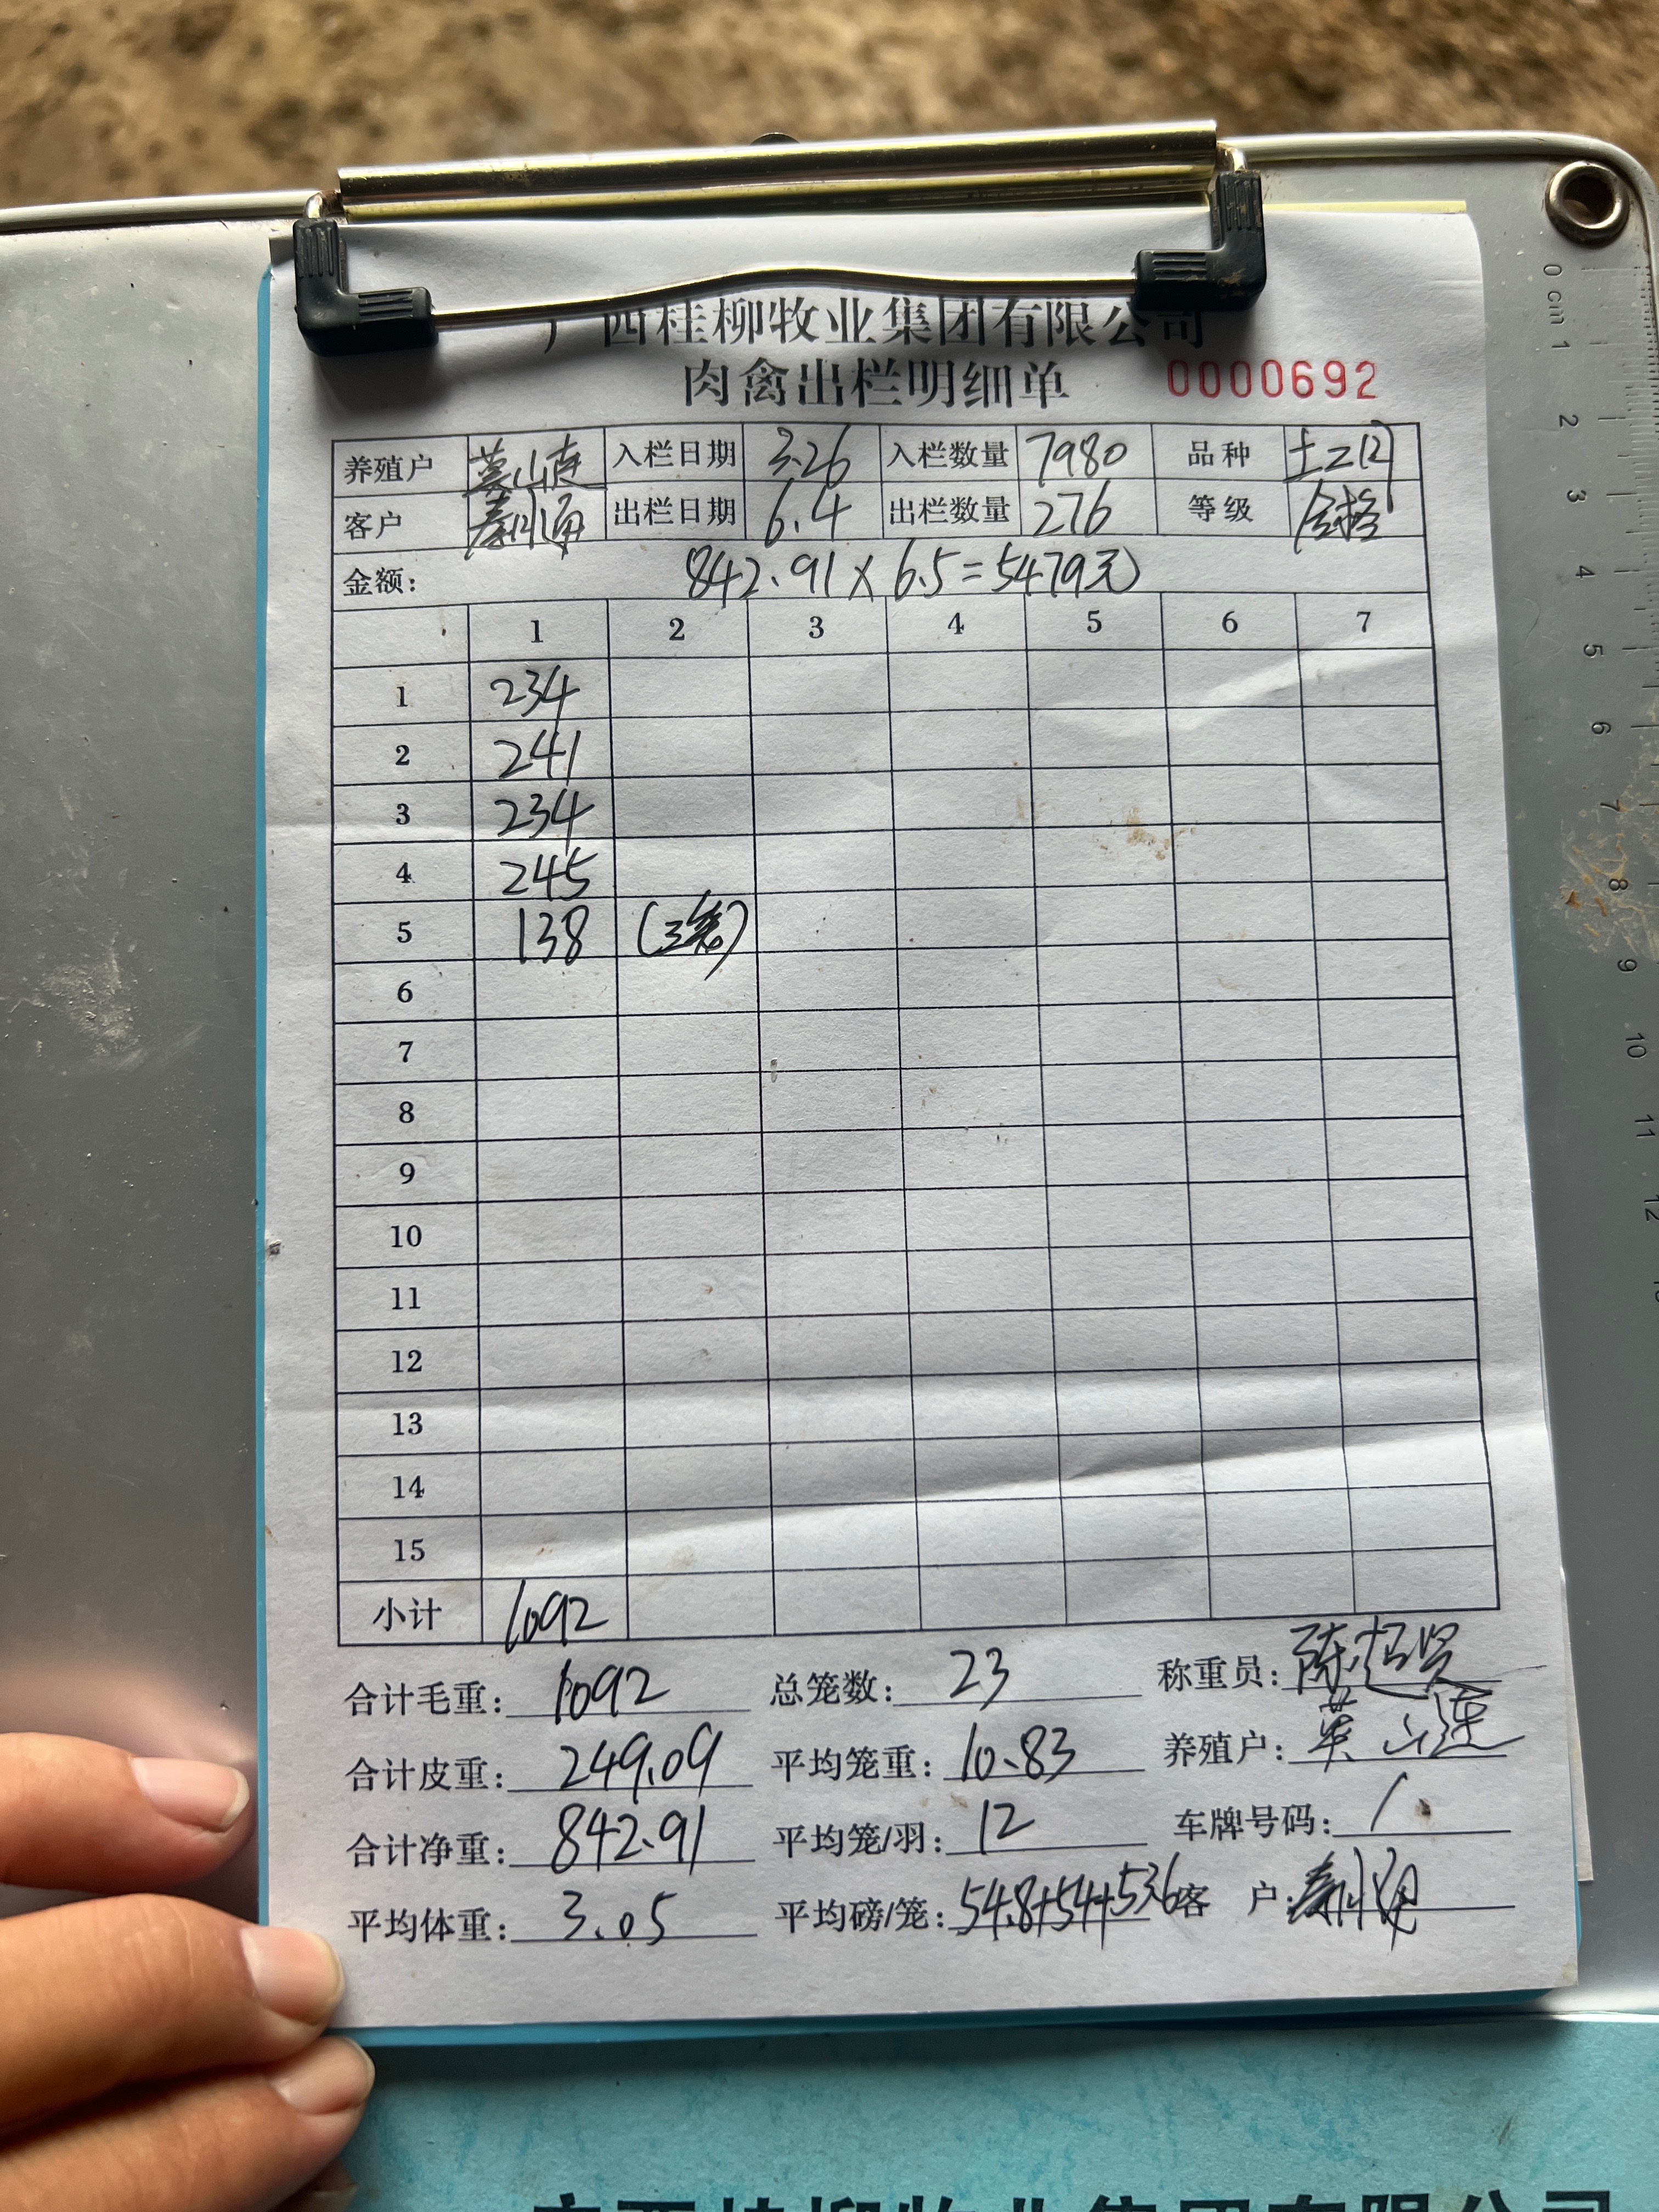 广西桂柳牧业集团有限公司
肉禽出栏明细单 0000692
养殖户 入栏日期 3.26 入栏数量 7980 品种 土二
客户 出栏日期 6.4 出栏数量 276 等级 合格
金额: 842.91 x 6.5 = 5479元
1 2 3 4 5 6 7
1 234
2 241
3 234
4 245
5 138 (三笼)
6
7
8
9
10
11
12
13
14
15
小计 1092
合计毛重: 1092 总笼数: 23 称重员: 陈超贤
合计皮重: 249.09 平均笼重: 10.83 养殖户:
合计净重: 842.91 平均笼/羽: 12 车牌号码: /
平均体重: 3.05 平均磅/笼: 54.8+54+53.6 客 户:
0 cm 1 2 3 4 5 6 7 8 9 10 11 12
广西桂柳牧业集团有限公司